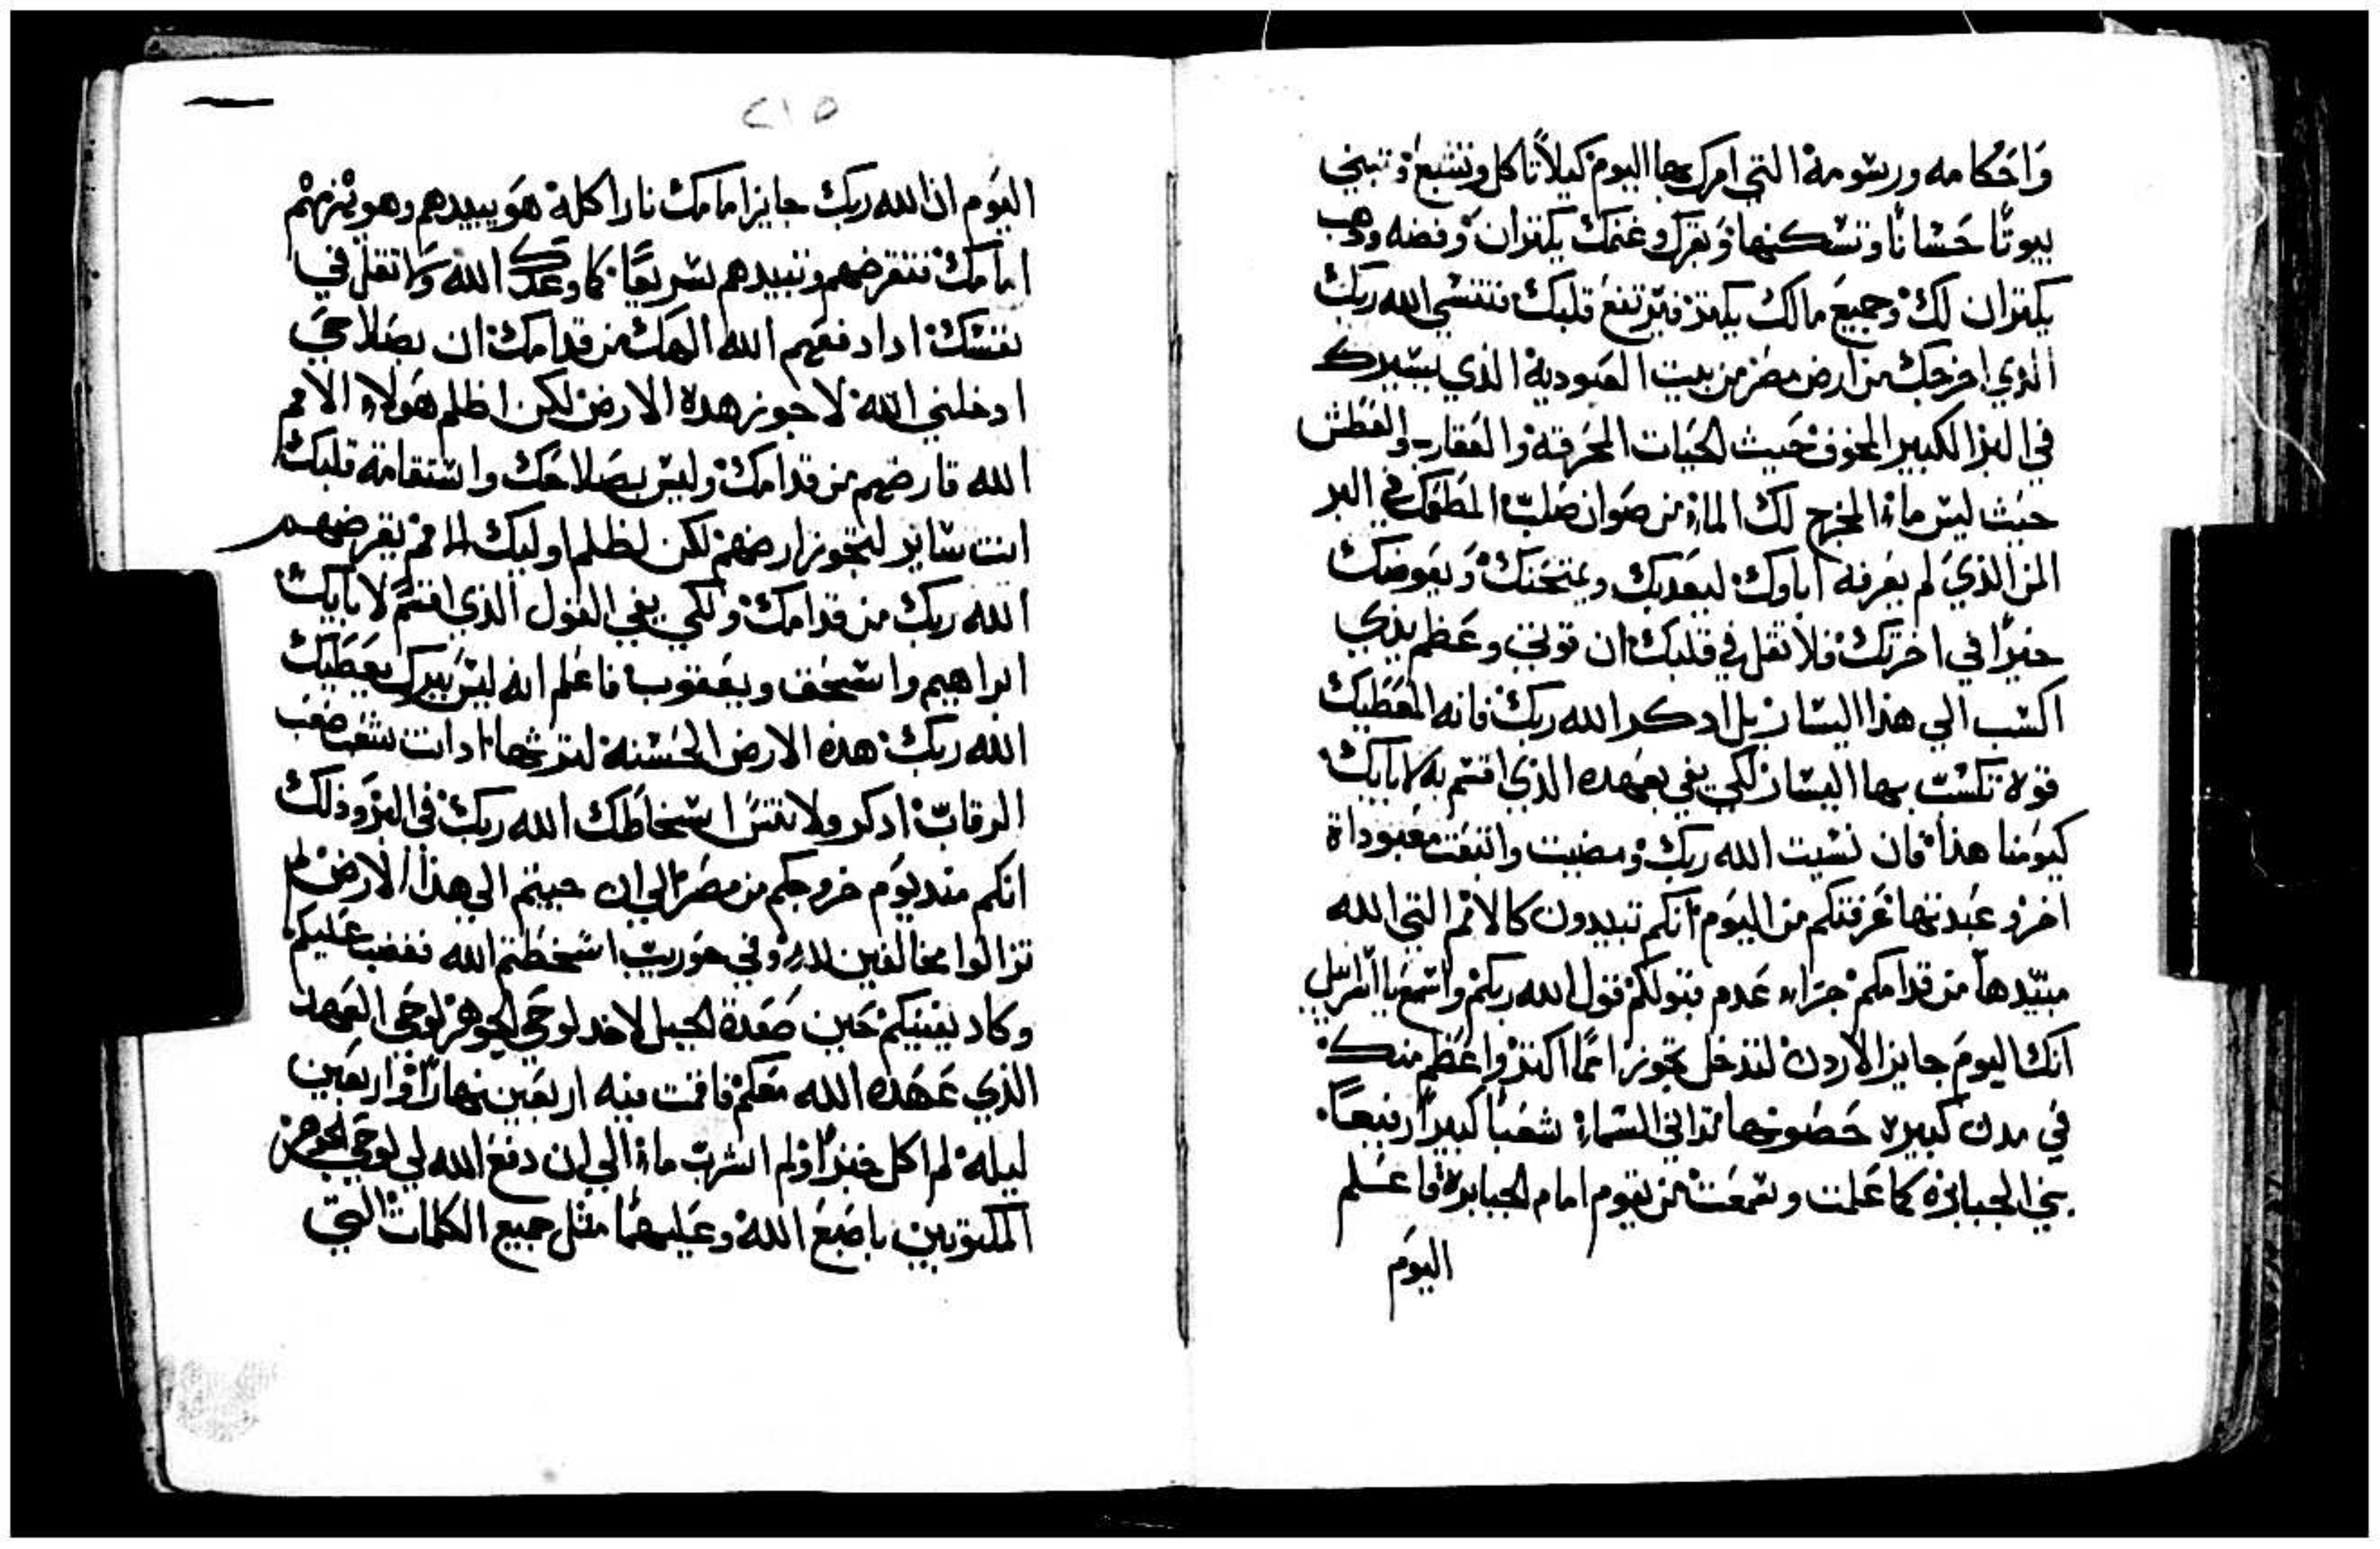 وَاحَكامه ورسومه التي امرك بها اليوم كيلا تاكل وتشبع وتبني
بيوتًا حسانًا وتسكنها وبقرك وغنمك يكتران وفضه وذهب
يكتران لك وجميع مالك يكتر فيرتفع قلبك فتنسي الله ربك
الذي اخرجك من ارض مصر من بيت العبودية الذي يسيرك
في البر الكبير المخوف حيث الحيات المحرقة والعقارب والعطش
حيث ليس ماء المخرج لك الماء من صوان صلب المطعمك في البر
المن الذي لم يعرفه اباوك ليعدبك ويمتحنك ويعوضك
خيرًا في اخرتك فلا تقل في قلبك ان قوتي وعظم يدي
اكسب الي هذا اليسار بل ادكر الله ربك فانه المعطيك
قوة تكسب بها اليسار لكي يفي بعهده الذي اقسم به لابايك
كيومنا هذا فان نسيت الله ربك ومضيت واتبعت معبوداة
اخر وعبدتها عرفتكم من اليوم انكم تبيدون كالامم التي الله
مبيدها من قدامكم جزاء عدم قبولكم قول الله ربكم واسمع يااسراييل
انك اليوم جايز الاردن لتدخل تجوز امما اكتر واعظم منك
في مدن كبيره حصونها تدافي السماء شعبا كبيرا رفيعا
بني الجبابره كما علمت وسمعت من يقوم امام الجبابرة فاعلم
اليوم
٢١٥
اليوم ان الله ربك جايز امامك نارا اكلة هو يبيدهم وهو يهزمهم
امامك فتقرضهم وتبيدهم سريعا كما وعدك الله ولا تقل في
نفسك ادا دفعهم الله الهك من قدامك ان بصلاحي
ادخلني الله لاحوز هده الارض لكن لظلم هولاء الامم
الله قارضهم من قدامك وليس بصلاحك واستقامة قلبك
انت ساير لتجوز ارضهم لكن لظلم اوليك الامم يقرضهم
الله ربك من قدامك ولكي يفي القول الذي اقسم لابايك
ابراهيم واسحق ويعقوب فاعلم انه ليس ببرك يعطيك
الله ربك هذه الارض الحسنه لترثها اد انت شعب صعب
الرقاب ادكر ولا تنسَ اسخاطك الله ربك في البر وذلك
انكم مند يوم خروجكم من مصر الي ان جيتم الي هذا الارض لم
تزالوا مخالفين لله وفي حوريب اسخطتم الله فغضب عليكم
وكاد يفنيكم حين صعدة الجبل لاخد لوحي الجوهر لوحي العهد
الذي عهده الله معكم فاقمت فيه اربعين نهارا واربعين
ليله لم اكل خبزًا ولم اشرب ماء الي ان دفع الله لي لوحي الجوهر
المكتوبين باصبع الله وعليهما مثل جميع الكلمات التي